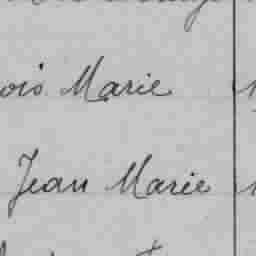 ois Marie
Jean Marie